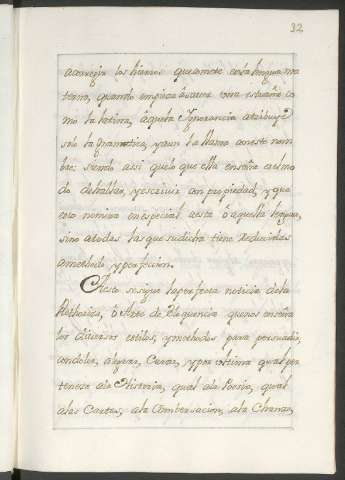 32
acorregir los hierros que comete en la lengua ma
terna, quando empieza á saver otra estraña co
mo la latina, á aquella Ignorancia atribuye
solo la gramatica, y aun la llama con este nom
bre: siendo assi que lo que ella enseña es el mo
do de hablar, y escrivir con propiedad, y que
esto no mira en especial a esta ó aquella lengua,
sino a todas las que su dicha tiene reducidas
a methodo y perfeccion.
A esto se sigue la perfecta noticia de la
Rethorica, ó Arte de Eloquencia que nos enseña
los diversos estilos, y methodos para persuadir,
condoler, alegrar, y por ultimo qual per
tenece a la Historia, qual a la Poesia, qual
a las Cartas, a la Combersacion, a la Chanza,